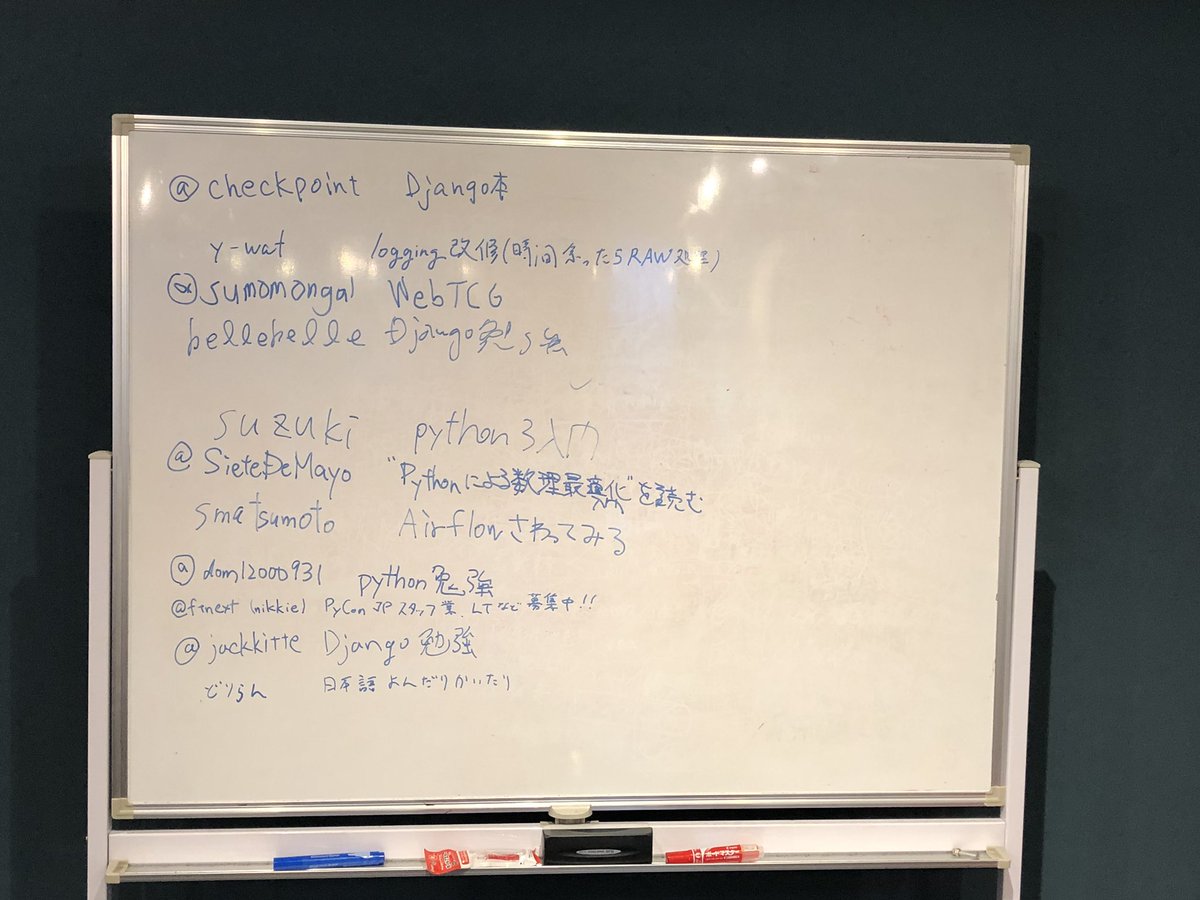 @checkpoint Django本
y-wat logging改修(時間余ったらRAW処理)
@sumomongal WebTCG
bellebelle Django勉強
suzuki python3入門
@SieteDeMayo "Pythonによる数理最適化"を読む
smatsumoto Airflowさわってみる
@dom12000931 python勉強
@ftnext (nikkie) PyCon JP スタッフ業、LTなど募集中!!
@jackkitte Django勉強
どりらん 日本語よんだりかいたり
ボードマスター